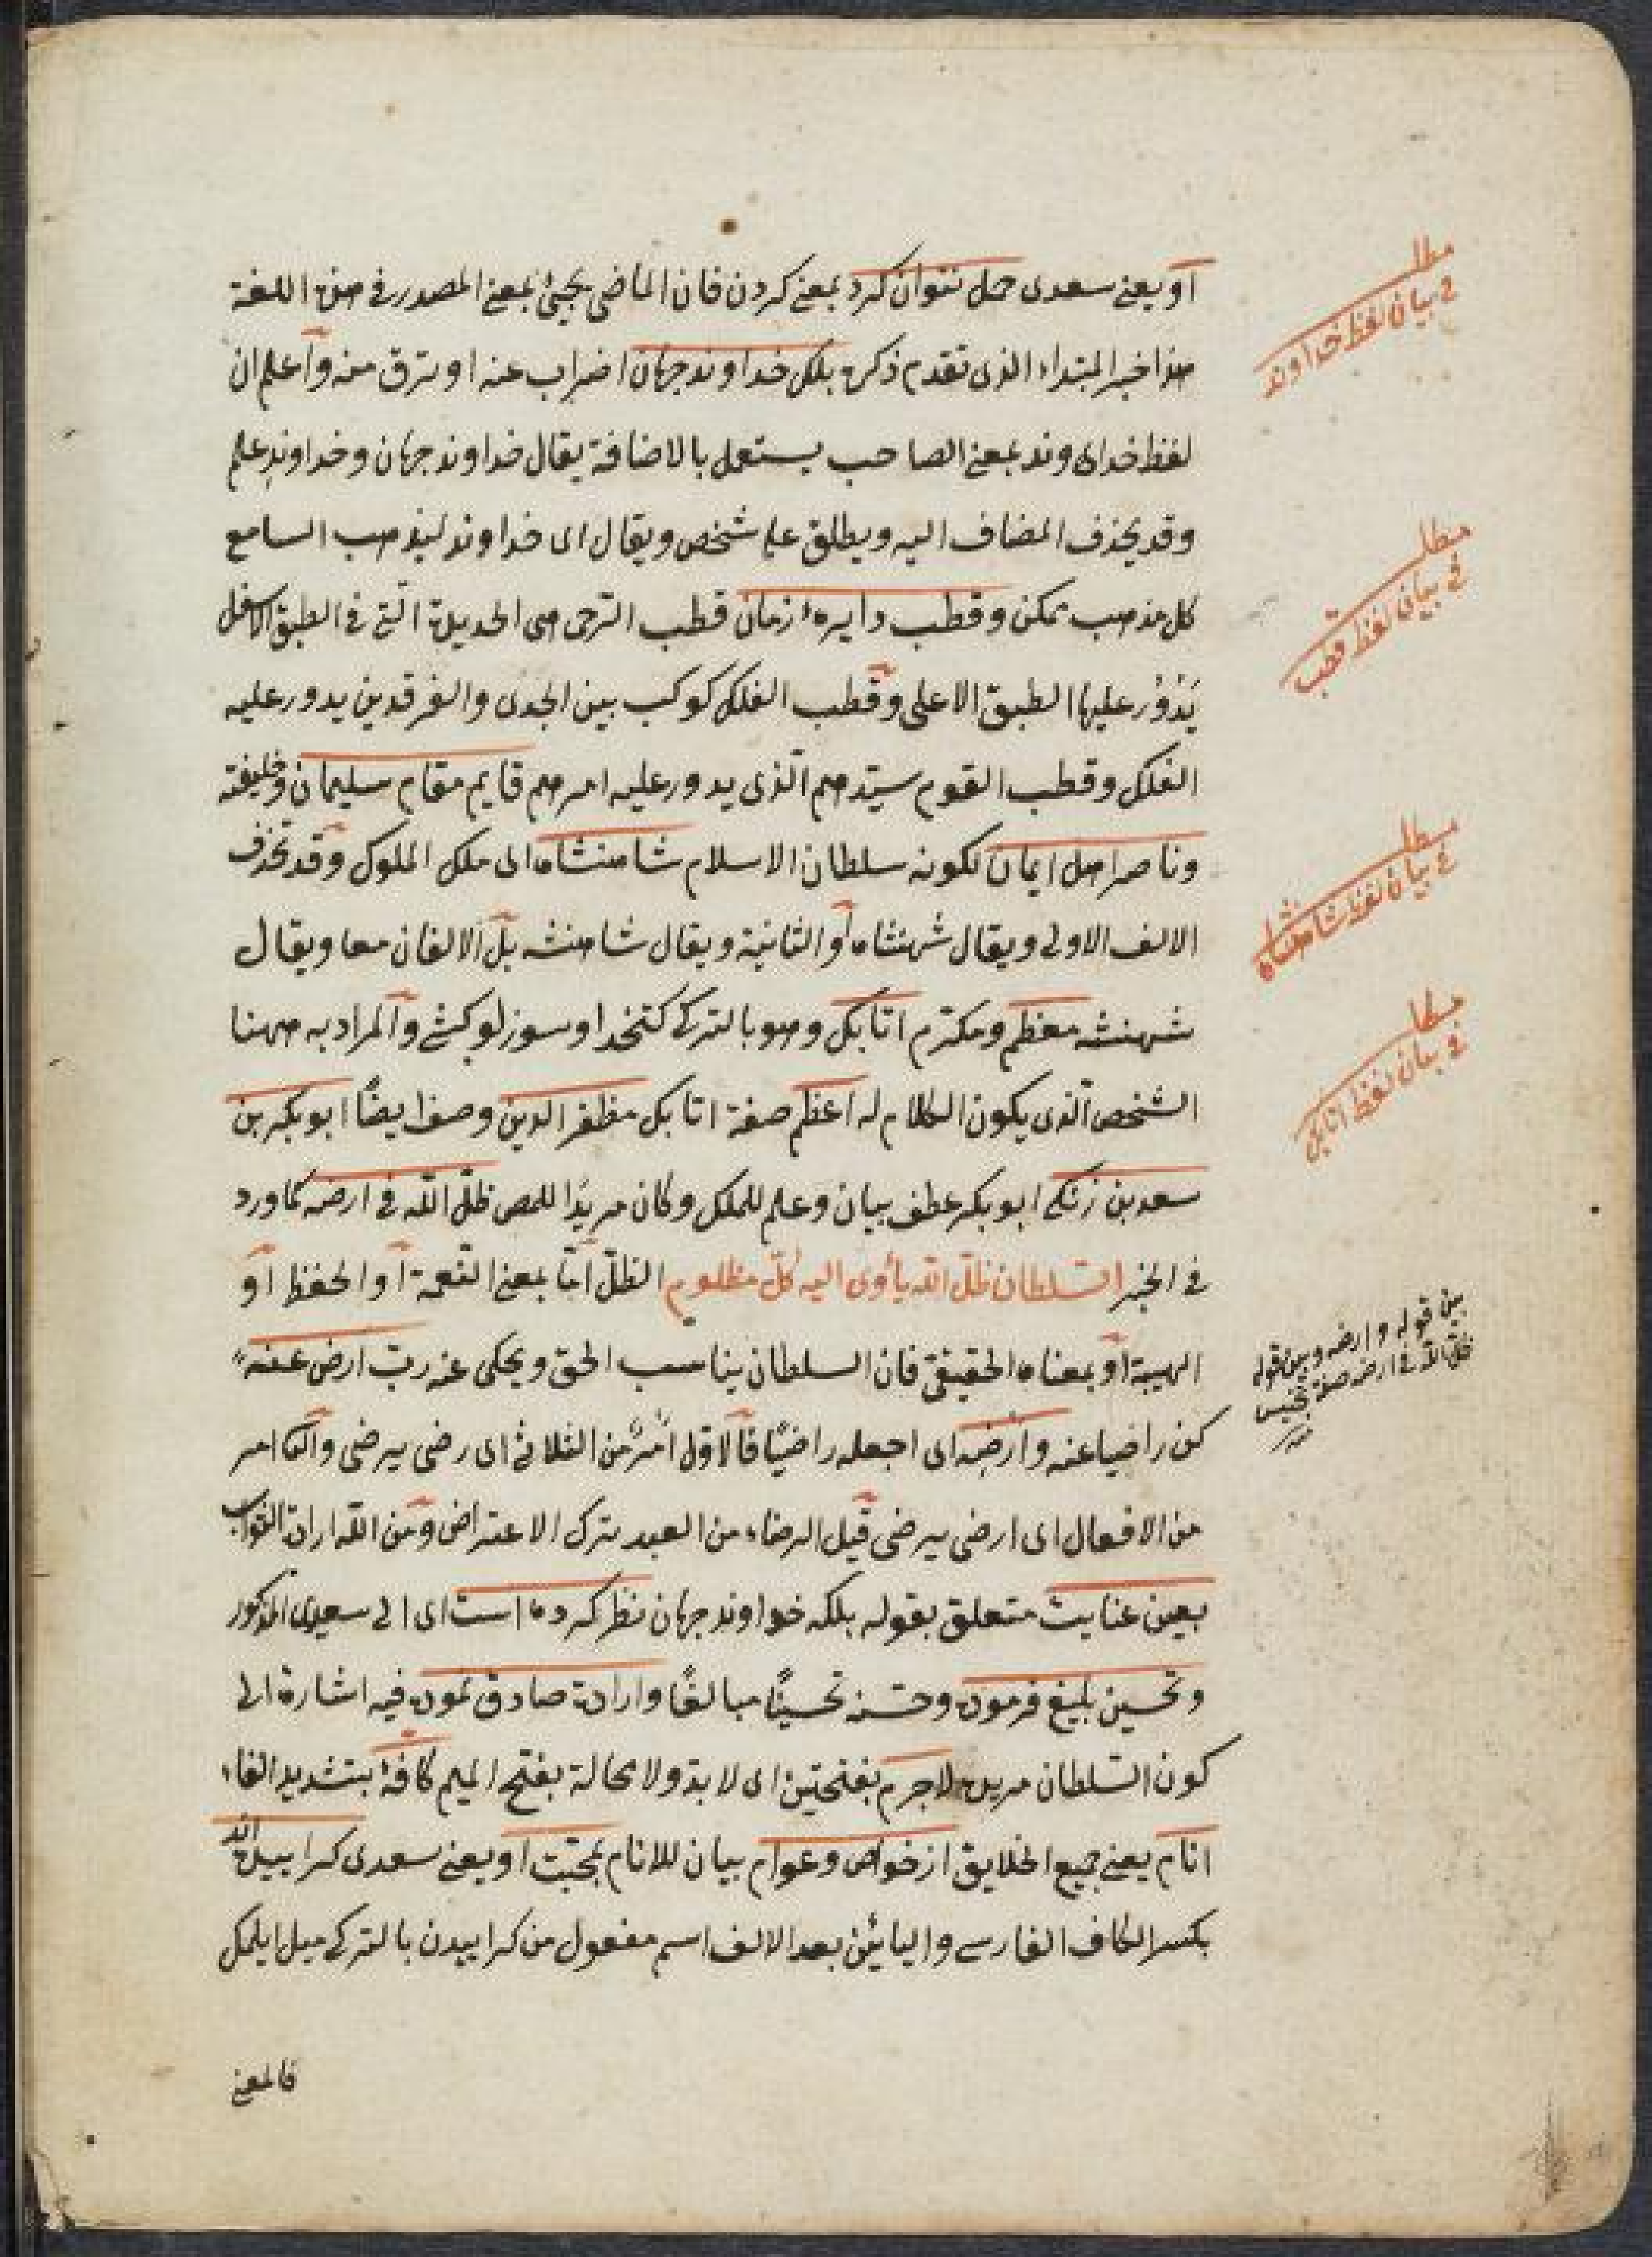 او يعنى سعدى حمل نتوان كرد بمعنى كردن فان الماضى يجئ بمعنى المصدر فى هذه اللغة
هذا خبر المبتداء الذى تقدم ذكره بلكه خداوند جهان اضراب عنه او ترق منه واعلم ان
لفظ خداى وند بمعنى الصاحب يستعمل بالاضافة يقال خداوند جهان وخداوند علم
وقد يحذف المضاف اليه ويطلق على شخص ويقال اى خداوند ليذهب السامع
كل مذهب ممكن وقطب دايره ازمان قطب الرحى هى الحديدة التى فى الطبق الاسفل
يَدُوُر عليها الطبق الاعلى وقطب الفلك كوكب بين الجدى والفرقدين يدور عليه
الفلك وقطب القوم سيّدهم الّذى يدور عليه امرهم قايم مقام سليمان وخليفته
وناصر اهل ايمان لكونه سلطان الاسلام شاهنشاه اى ملك الملوك وقد تحذف
الالف الاولى ويقال شهنشاه او الثانية ويقال شاهنشه بل الالفان معا ويقال
شهنشه معظم ومكرّم اتابك وهو بالتركى كتخدا وسوزلو كشى والمراد به ههنا
الشخص الّذى يكون الكلام له اعظم صفة اتابك مظفر الدين وصف ايضًا ابو بكر بن
سعد بن زنكى ابو بكر عطف بيان وعلم للملك وكان مريدًا للمص ظلّ اللّه فى ارضه كما ورد
فى الخبر السّلطان ظلّ اللّه يأوى اليه كلّ مظلوم الظلّ امّا بمعنى النعمة او الحفظ او
الهيبة او بمعناه الحقيقى فان السلطان يناسب الحق ويحكى عنه ربّ ارض عنه
كن راضيا عنه وارضه اى اجعله راضيًا فالاوّل امْرٌ من الثلاثى اى رضى يرضى والثا امر
من الافعال اى ارضى يرضى قيل الرضاء من العبد ترك الاعتراض ومن اللّه ارادة الثواب
بعين عنايت متعلق بقوله بلكه خداوند جهان نظر كرده است اى الى سعدى المذكور
وتحسين بليغ فرموده وحسّنه تحسينًا مبالغًا وارادة صادق نموده فيه اشارة الى
كون السّلطان مريده لاجرم بفتحتين اى لا بدّ ولا محالة بفتح الميم كافّهٔ بتشديد الفاء
انام يعنى جميع الخلايق از خواص وعوام بيان للانام بمحبّت او يعنى سعدى كراييده اند
بكسر الكاف الفارسى واليائين بعد الالف اسم مفعول من كراييدن بالتركى ميل ايلمك
فالمعنى
مطلب
فى بيان لفظ خداوند
مطلب
فى بيان لفظ قطب
مطلب
فى بيان لفظ شاهنشاه
مطلب
فى بيان لفظ اتابك
بين قوله وارضه وبين قوله
ظلّ اللّه فى ارضه صفة تجنيس